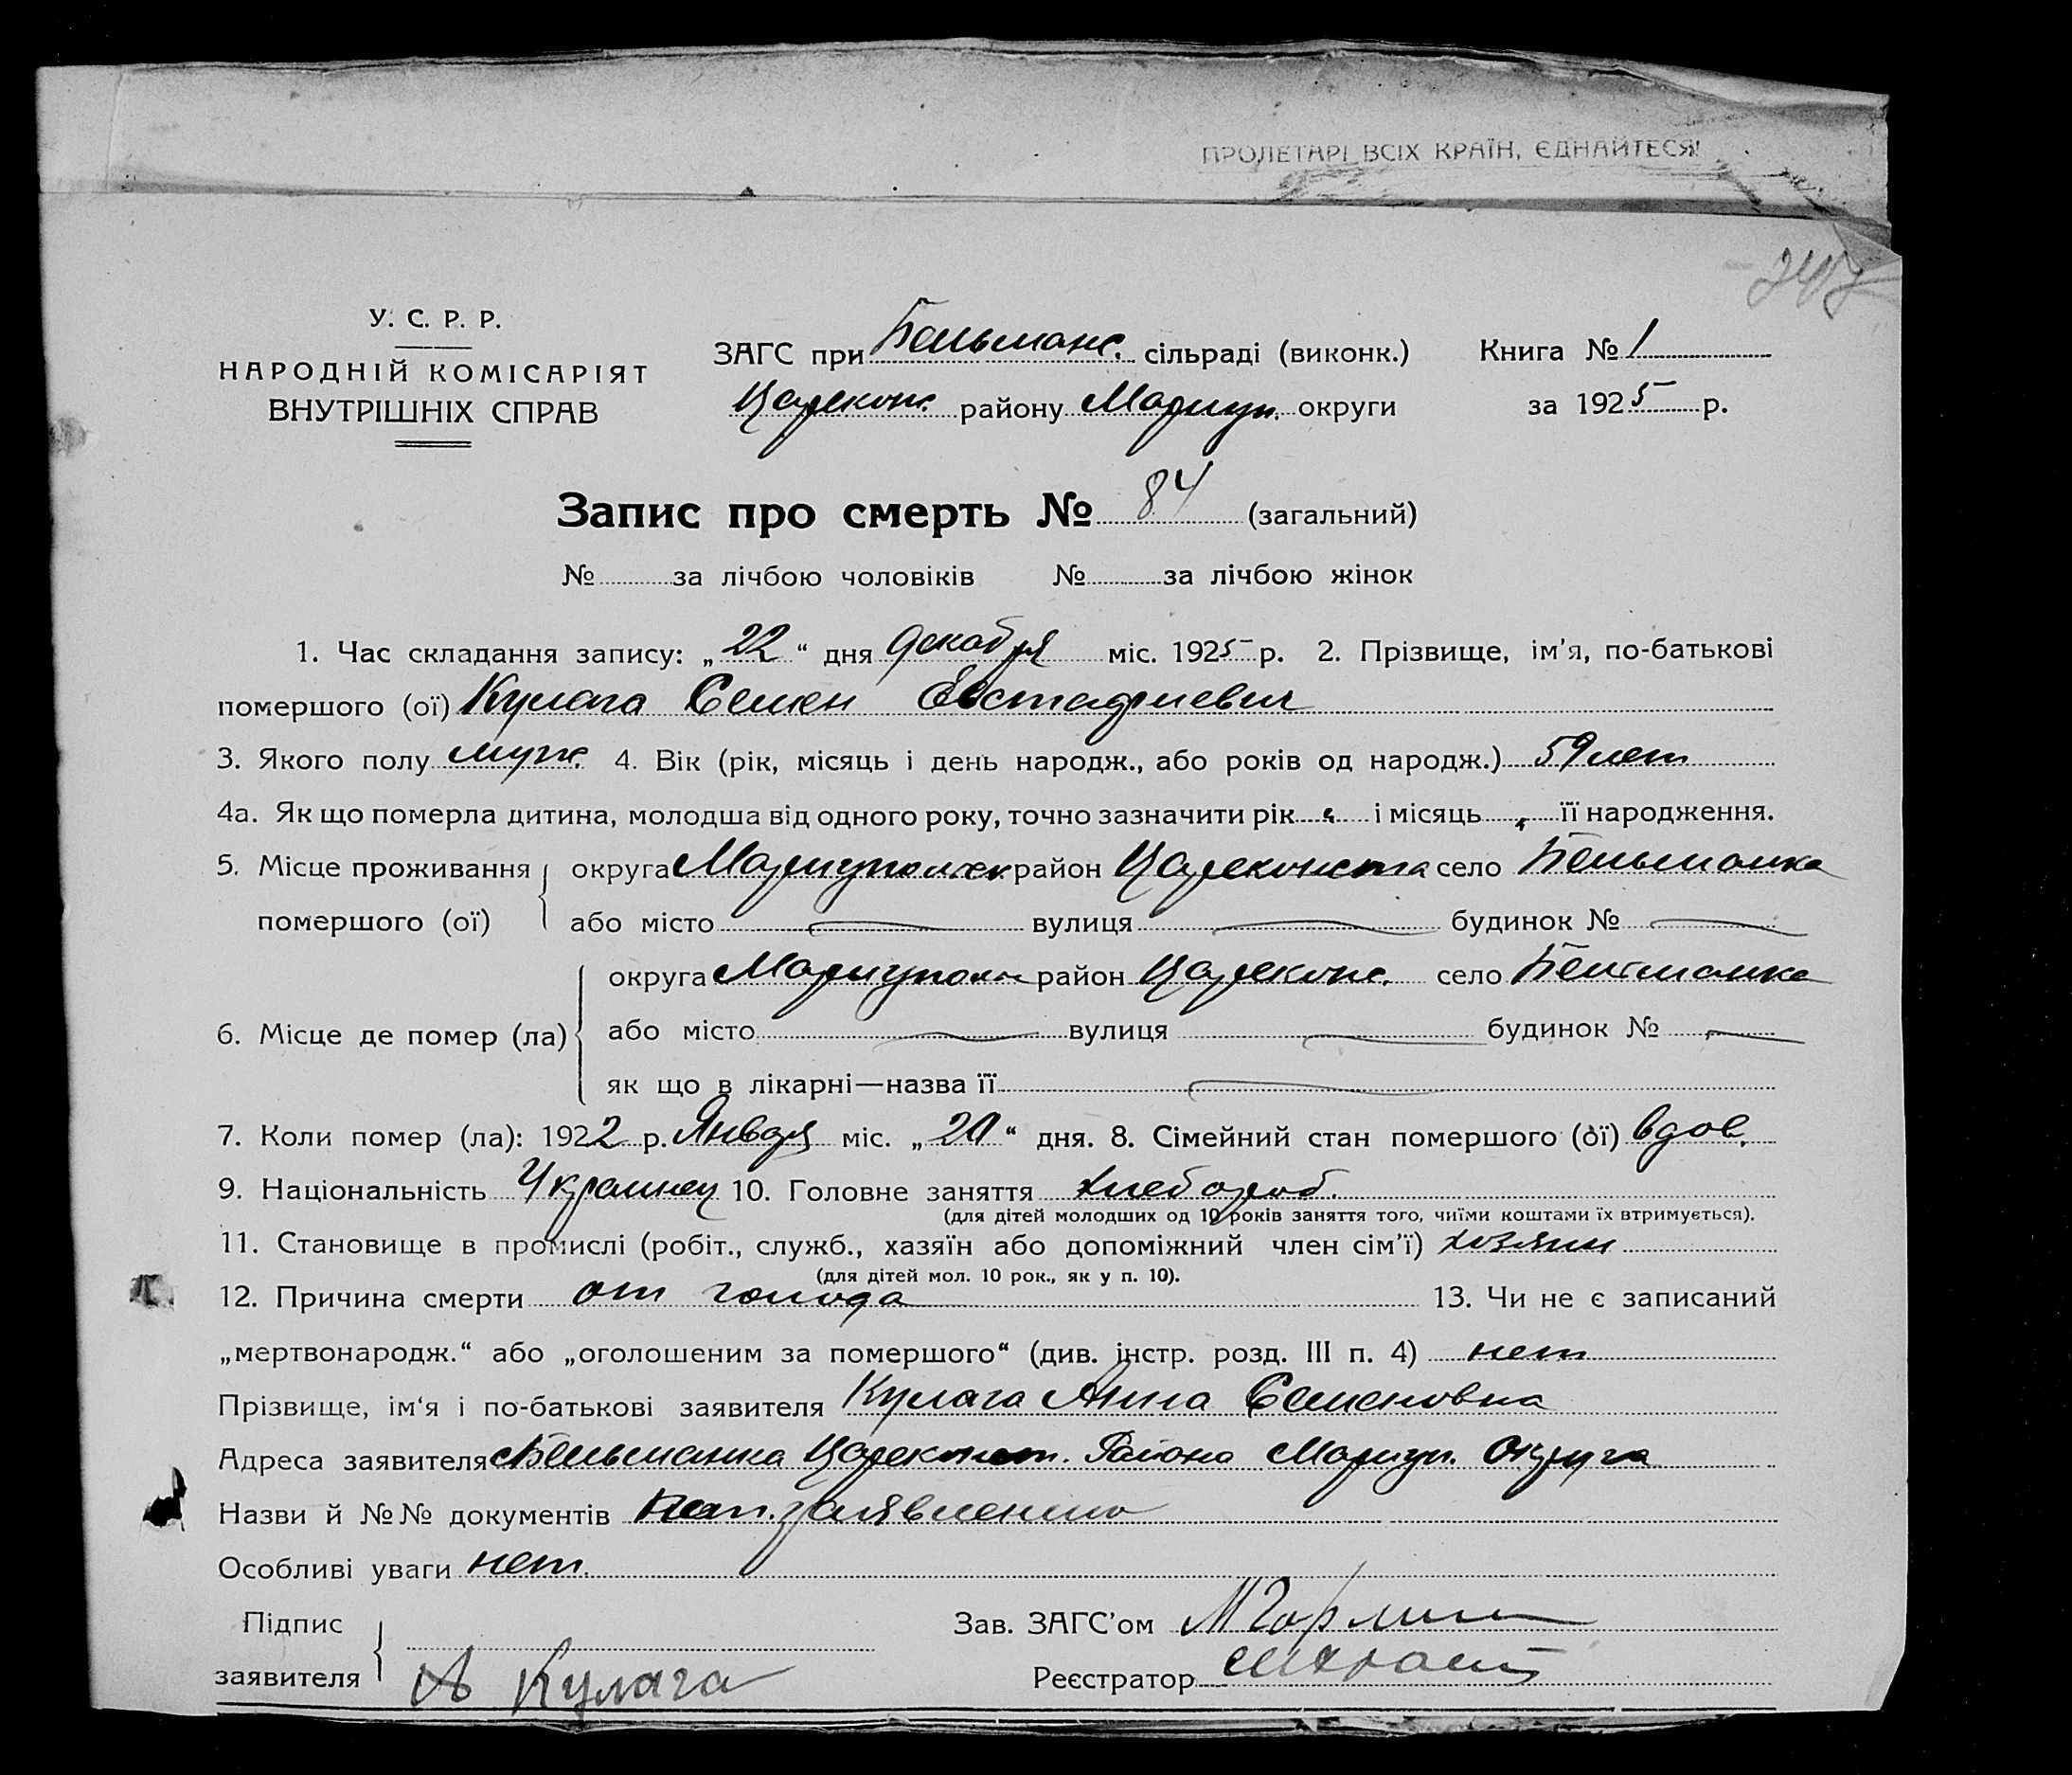 ПРОЛЕТАРІ ВСІХ КРАЇН, ЄДНАЙТЕСЯ!
У. С. Р. Р.
НАРОДНІЙ КОМІСАРІЯТ
ВНУТРІШНІХ СПРАВ
ЗАГС при Бельманс. сільраді (виконк.) Книга № 1
Царекон. району Мариуп. округи за 1925 р.
Запис про смерть № 84 (загальний)
№ за лічбою чоловіків № за лічбою жінок
1. Час складання запису: „22“ дня декабря міс. 1925 р. 2. Прізвище, ім'я, по-батькові
помершого (ої) Кулага Семен Евстафиевич
3. Якого полу муж. 4. Вік (рік, місяць і день народж., або років од народж.) 59 лет
4а. Як що померла дитина, молодша від одного року, точно зазначити рік і місяць її народження.
5. Місце проживання помершого (ої) округа Мариупольск район Цареконста село Бельманка
або місто — вулиця — будинок № —
6. Місце де помер (ла) округа Мариуполь район Царекон. село Бельманка
або місто — вулиця — будинок № —
як що в лікарні—назва її —
7. Коли помер (ла): 1922 р. Января міс. „20“ дня. 8. Сімейний стан помершого (ої) вдов.
9. Національність Украинец 10. Головне заняття хлебороб.
(для дітей молодших од 10 років заняття того, чиїми коштами їх втримується).
11. Становище в промислі (робіт., служб., хазяїн або допоміжний член сім'ї) хозяин
(для дітей мол. 10 рок., як у п. 10).
12. Причина смерти от голода 13. Чи не є записаний
„мертвонародж.“ або „оголошеним за помершого“ (див. інстр. розд. III п. 4) нет
Прізвище, ім'я і по-батькові заявителя Кулага Анна Семеновна
Адреса заявителя с Бельманка Царекнст. Района Мариуп. Округа
Назви й №№ документів заявлению
Особливі уваги нет.
Підпис заявителя А Кулага
Зав. ЗАГС'ом
Реєстратор